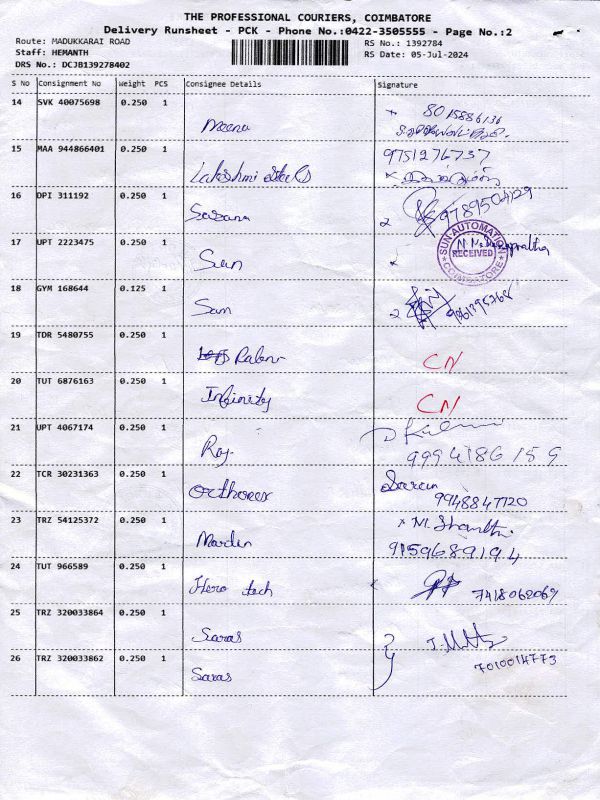 THE PROFESSIONAL COURIERS, COIMBATORE
Delivery Runsheet - PCK - Phone No.:0422-3505555 - Page No.:2
Route: MADUKKARAI ROAD
Staff: HEMANTH
DRS No.: DCJB139278402
RS No.: 1392784
RS Date: 05-Jul-2024
S No Consignment No Weight PCS Consignee Details Signature
14 SVK 40075698 0.250 1 Meena 8015886136
15 MAA 944866401 0.250 1 Lakshmi 9751276737
16 DPI 311192 0.250 1 9789504129
17 UPT 2223475 0.250 1 Sun
SUN AUTOMATION
RECEIVED
COIMBATORE
18 GYM 168644 0.125 1 Sun
19 TDR 5480755 0.250 1 CN
20 TUT 6876163 0.250 1 Infinity CN
21 UPT 4067174 0.250 1 Raj. 9994186159
22 TCR 30231363 0.250 1 Saran
9948847120
23 TRZ 54125372 0.250 1 Martin M. Shanthi
9159689194
24 TUT 966589 0.250 1 Hero tech 7418062069
25 TRZ 320033864 0.250 1 Saras
26 TRZ 320033862 0.250 1 Saras 7010014773